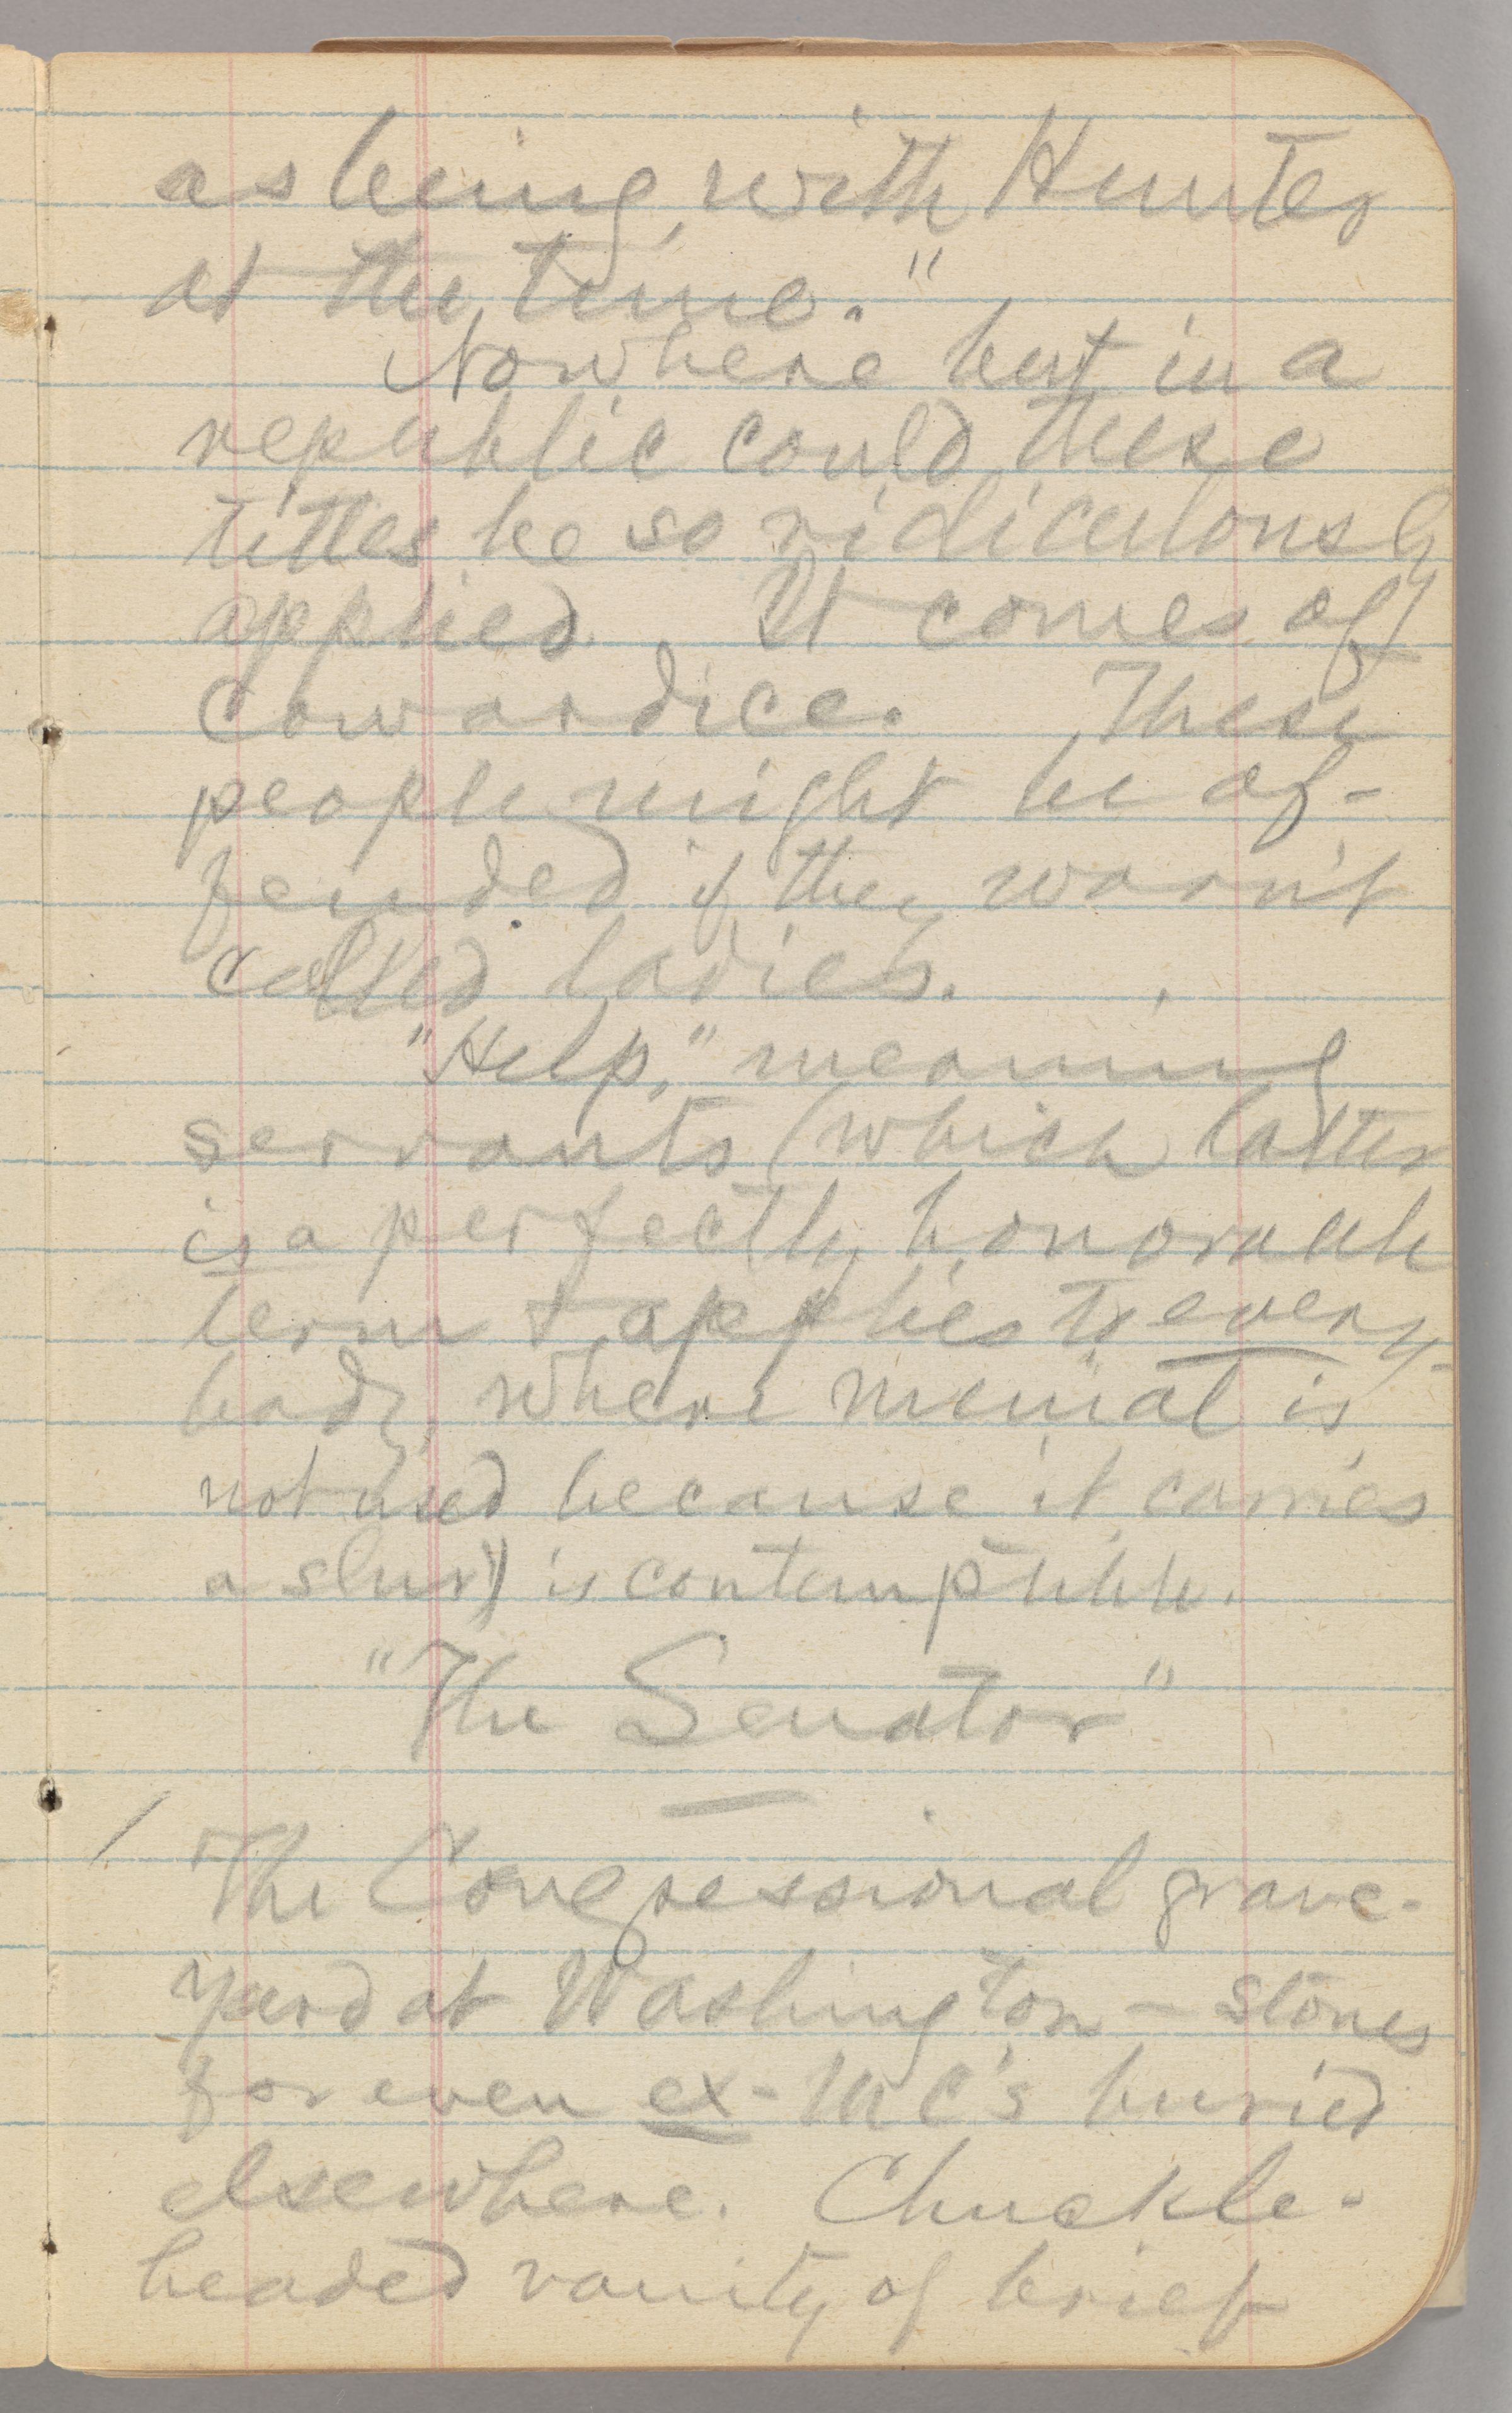 as being with Hunter
at the time."
Nowhere but in a
republic could these
titles be so ridiculously
applied. It comes of
cowardice. These
people might be of-
fended if they warn't
called ladies.
"Help," meaning
servants (which latter
is a perfectly honorable
term & applies to every-
body, where menial is
not used because it carries
a slur) is contemptible.
"The Senator"
The Congressional grave-
yard at Washington — stones
for even ex-MC's buried
elsewhere. Chuckle-
headed vanity of brief